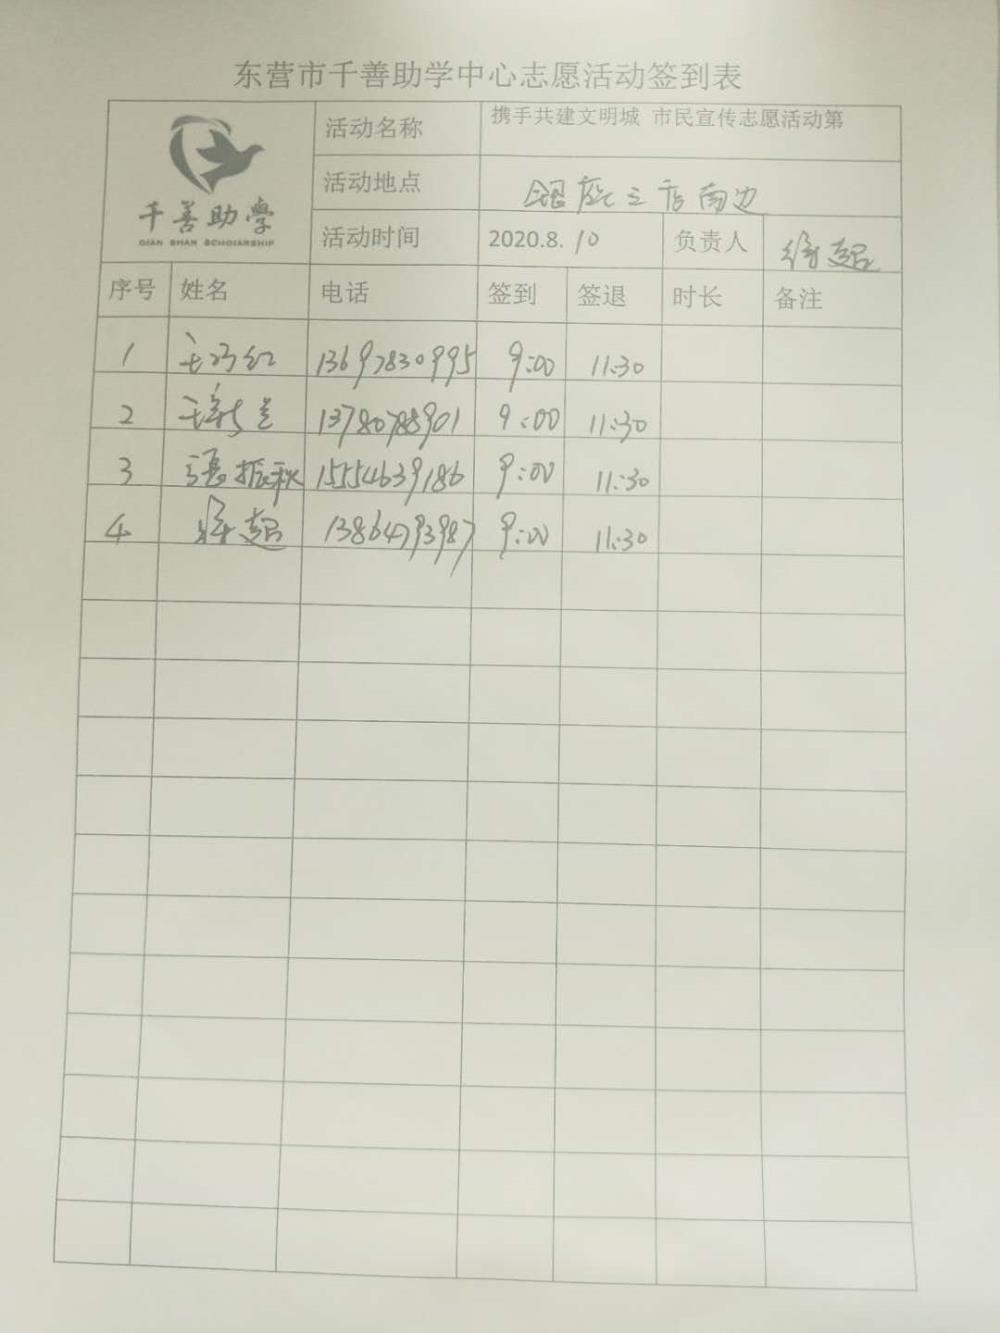 东营市千善助学中心志愿活动签到表
千善助學
QIAN SHAN SCHOlARSHIP
活动名称 携手共建文明城 市民宣传志愿活动第
活动地点 银座三店南边
活动时间 2020.8.10 负责人 超
序号 姓名 电话 签到 签退 时长 备注
1 王巧红 13697830995 9:00 11:30
2 13780788901 9:00 11:30
3 张振秋 15554639186 9:00 11:30
4 超 13864793987 9:00 11:30